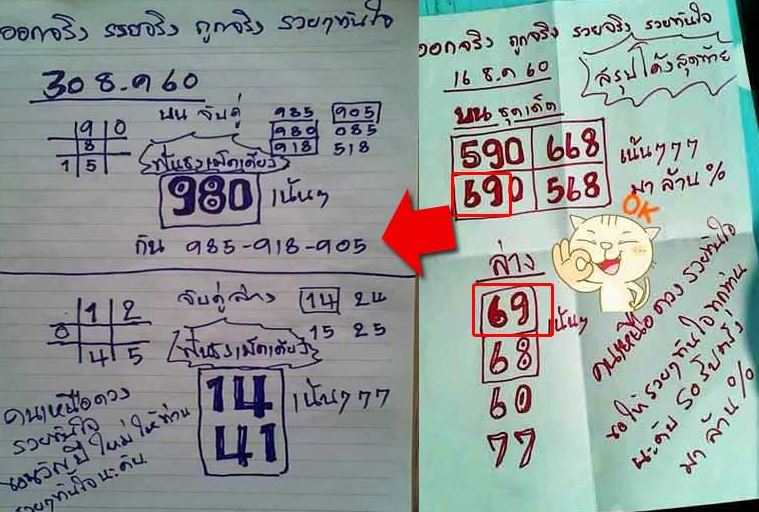 ออกจริง รวยจริง ถูกจริง รวยๆทันใจ
30 ธ.ค 60
บน จับคู่
985 905
980 085
918 518
9 0
8
1 5
ฟันธงเม็ดเดียว
980 เน้นๆ
กัน 985-918-905
1 2
0
4 5
จับคู่ล่าง 14 24
15 25
ฟันธงเม็ดเดียว
14
41
เน้น777
คนเหนือดวง
รวยทันใจ
ปีใหม่ให้ท่าน
รวยๆทันใจนะคับ
ออกจริง ถูกจริง รวยจริง รวยทันใจ
16 ธ.ค 60
สรุปโค้งสุดท้าย
บน ชุดเด็ด
590 668
690 568
เน้น777
มาล้าน%
OK
ล่าง
69 เน้นๆ
68
60
77
คนเหนือดวง รวยทันใจ
ขอให้รวยๆทันใจทุกท่าน
นะคับ รอรับตรัง
มาล้าน%